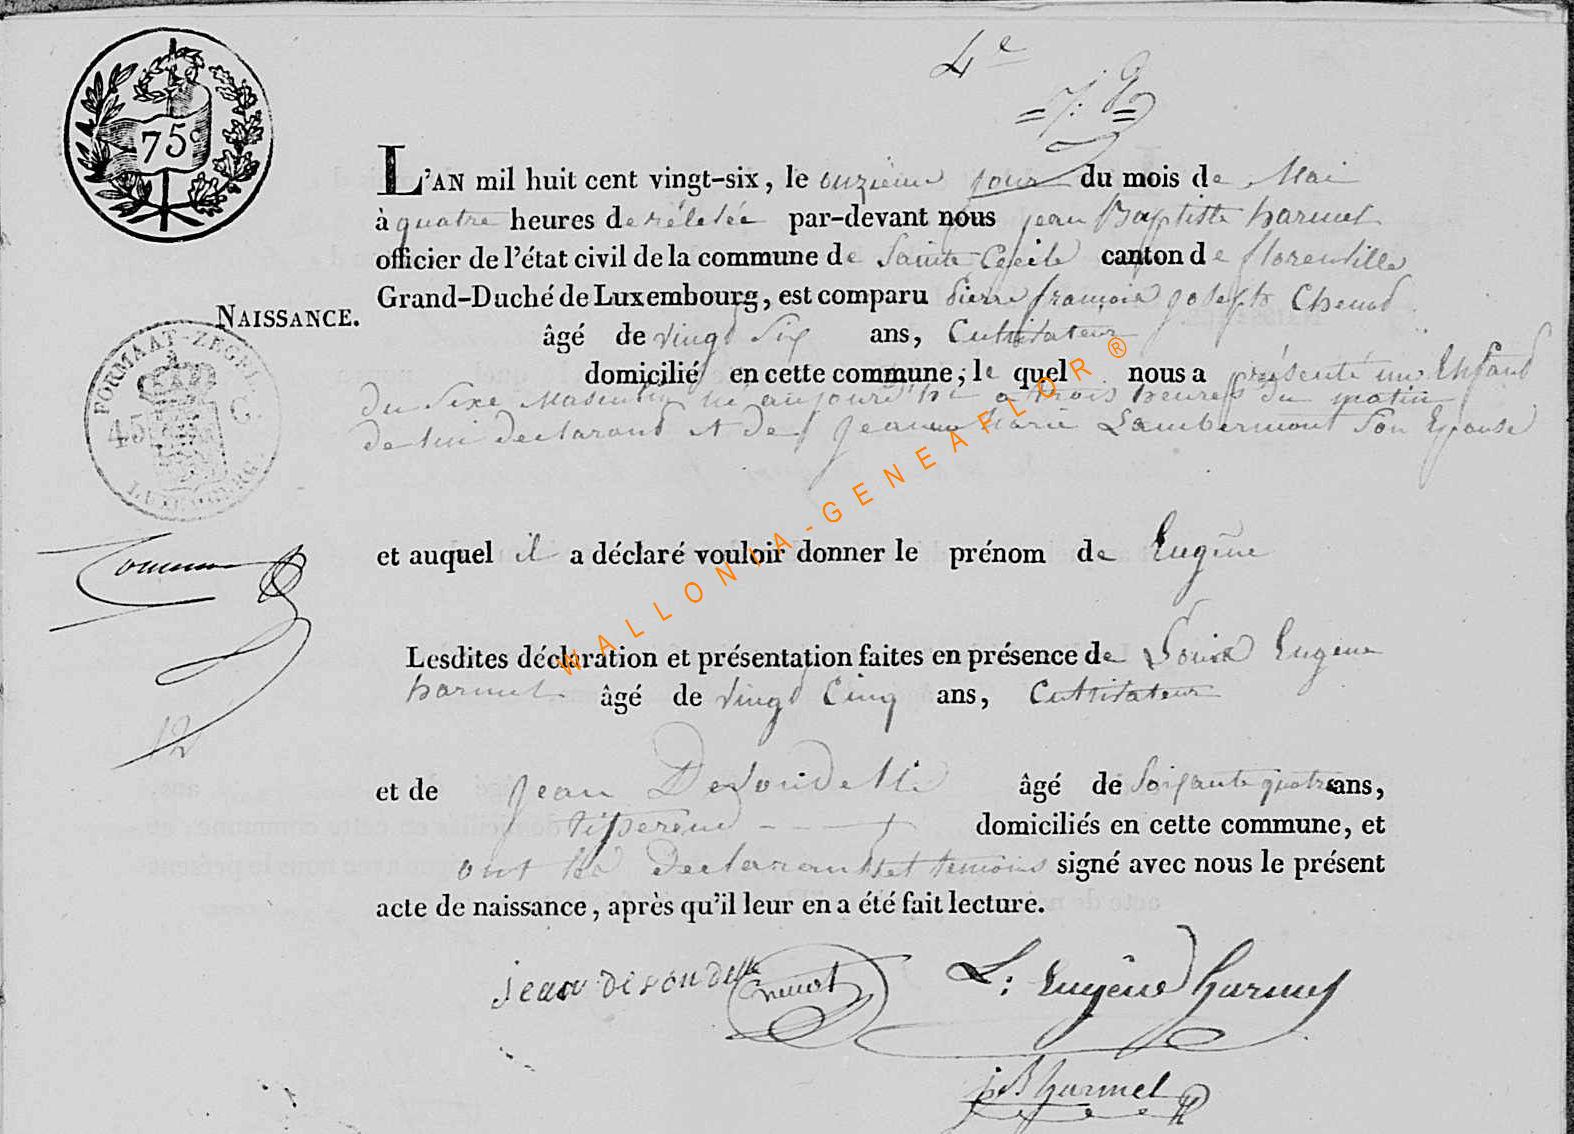 4e
75c
L'AN mil huit cent vingt-six, le onzieme jour du mois de Mai
à quatre heures de rélévée par-devant nous jean Baptiste harmel
officier de l'état civil de la commune de Sainte Cecile canton de florenville
Grand-Duché de Luxembourg, est comparu Pierre françois joseph Chenot
NAISSANCE.
âgé de vingt Six ans, Cultivateur
domicilié en cette commune, le quel nous a présenté un Enfant
du Sexe Masculin né aujourd'hui a trois heures du matin
de lui declarant et de jeanne Marie Lambermont Son Epouse
FORMAAT-ZEGEL
45 C.
LUXEMBURG
et auquel il a déclaré vouloir donner le prénom de Eugêne
Lesdites déclaration et présentation faites en présence de Louis Eugene
harmel âgé de vingt Cinq ans, Cultivateur
12
et de jean Desoudelle âgé de Soixante quatre ans,
tisserand domiciliés en cette commune, et
ont les declarant et temoins signé avec nous le présent
acte de naissance, après qu'il leur en a été fait lecture.
jean desoudelle Chenot L: Eugêne harmel
jB harmel
WALLONIA-GENEAFLOR ®